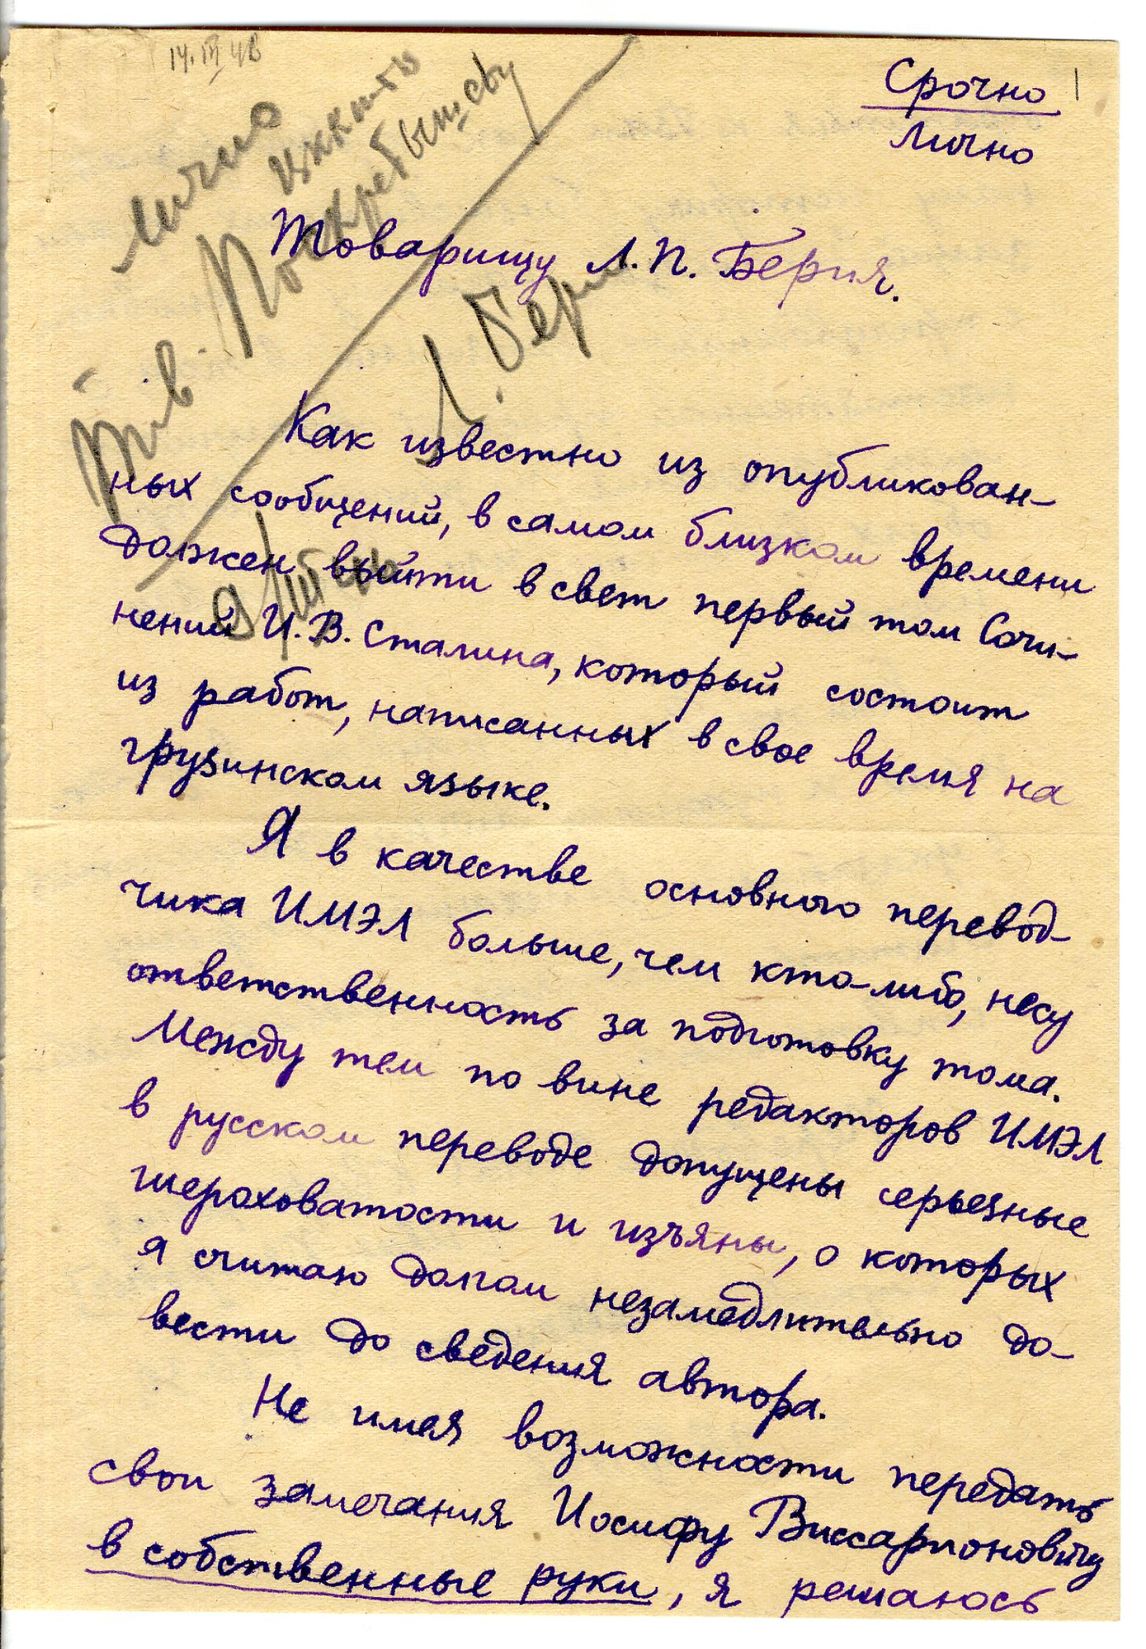 14.III 46
Срочно
1
Лично
лично
тов. Поскребышеву
Товарищу Л. П. Берия.
Л. Бери
Как известно из опубликован-
ных сообщений, в самом близком времени
должен выйти в свет первый том Сочи-
нений И. В. Сталина, который состоит
из работ, написанных в свое время на
грузинском языке.
Я в качестве основного перевод-
чика ИМЭЛ больше, чем кто-либо, несу
ответственность за подготовку тома.
Между тем по вине редакторов ИМЭЛ
в русском переводе допущены серьезные
шероховатости и изъяны, о которых
я считаю долгом незамедлительно до-
вести до сведения автора.
Не имея возможности передать
свои замечания Иосифу Виссарионовичу
в собственные руки, я решаюсь